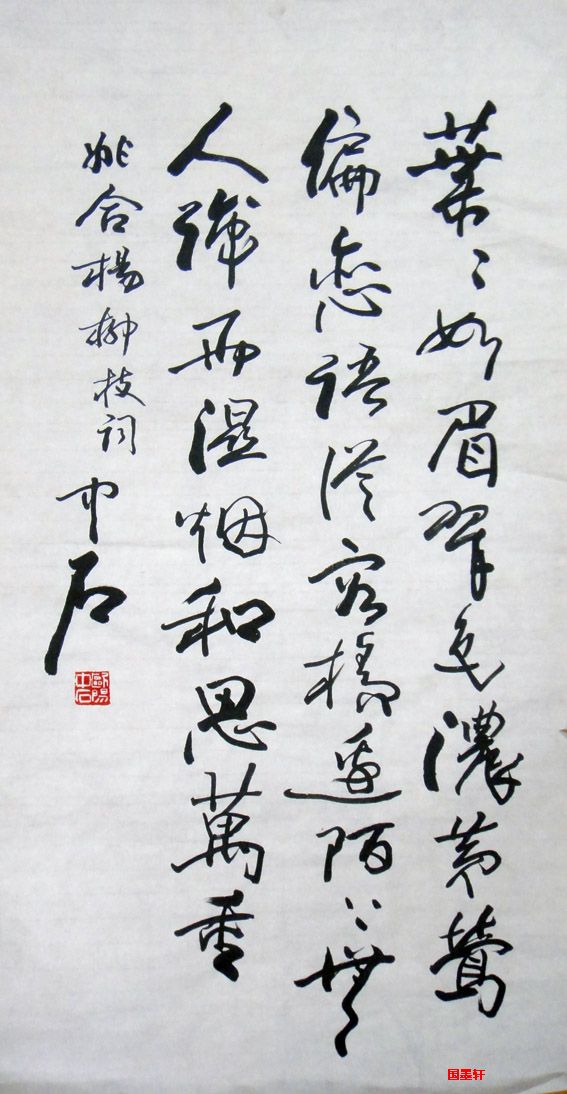 葉〻如眉翠色濃黄鶯
偏恋语従容橋邊陌上無
人識雨湿烟和思萬重
姚合楊柳枝词 中石
歐陽中石
国墨轩